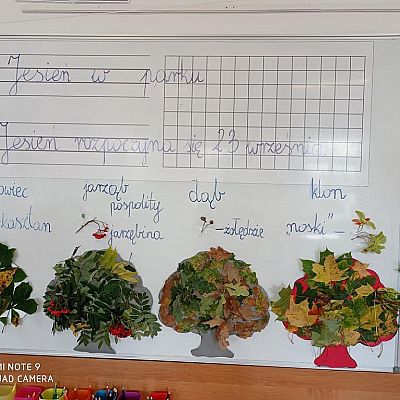 Jesień w parku
Jesień rozpoczyna się 23 września
owiec
kasztan
jarząb
pospolity
jarzębina
dąb
- żołędzie
klon
"noski" -
MI NOTE 9
UAD CAMERA